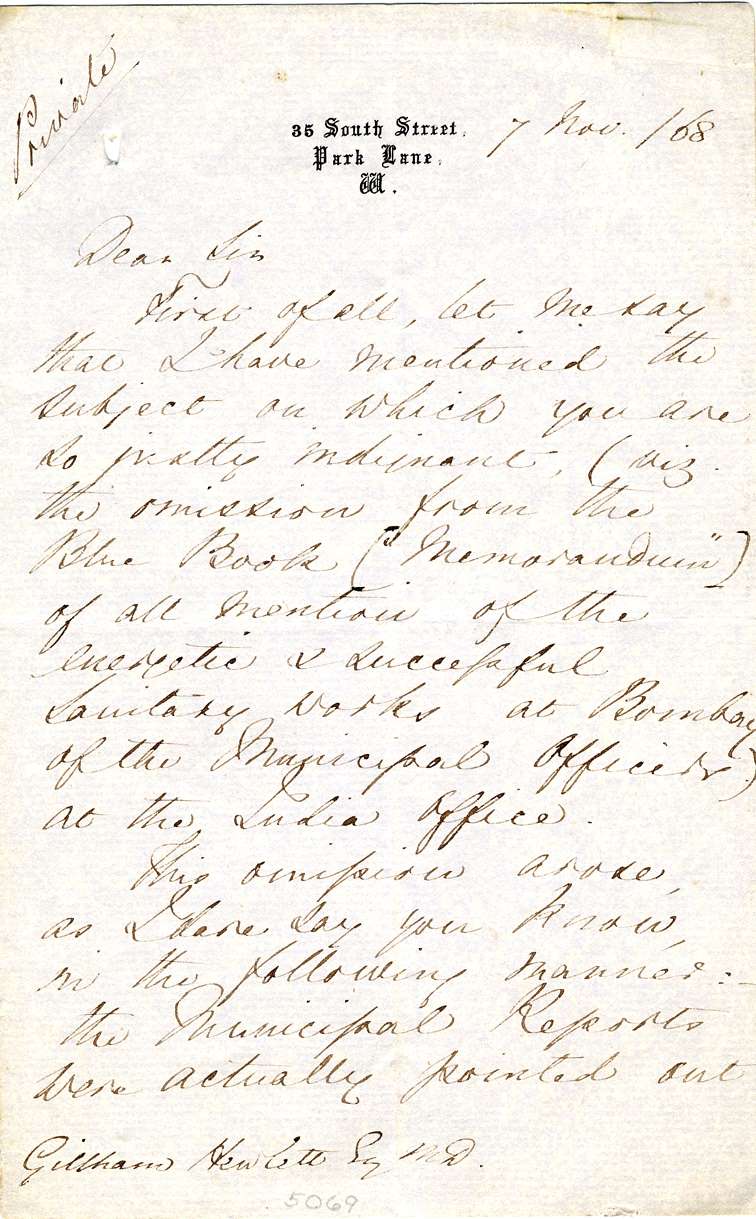 Private
35 South Street,
Park Lane,
W.
7 Nov. /68
Dear Sir
First of all, let me say
that I have mentioned the
subject on which you are
so justly indignant, (viz.
the omission from the
Blue Book ["Memorandum"]
of all mention of the
energetic & successful
Sanitary works at Bombay
of the Municipal Officers)
at the India Office.
This omission arose,
as I dare say you know,
in the following manner:–
the Municipal Reports
were actually pointed out
Gillham Hewlett Esq MD.
5069